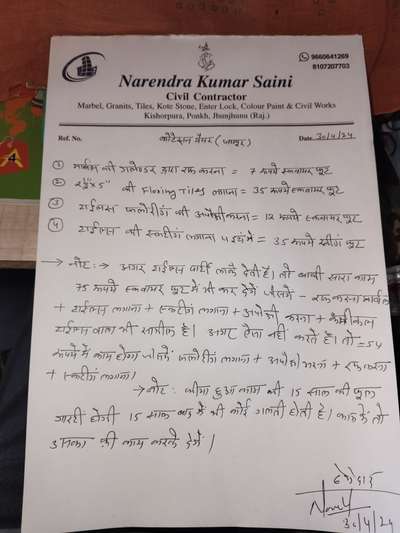 9660641269
8107207703
Narendra Kumar Saini
Civil Contractor
Marbel, Granits, Tiles, Kote Stone, Enter Lock, Colour Paint & Civil Works
Kishorpura, Ponkh, Jhunjhunu (Raj.)
Ref. No. कोटेशन पेपर (जयपुर) Date 30/4/24
① मार्बल की द्वारा रफ करना = 7 रुपये स्कवायर फुट
② की Floring Tiles लगाना = 35 रुपये स्कवायर फुट
③ टाईल्स फ्लोरींग की करना = 12 रुपये स्कवायर फुट
④ टाईल्स की स्कटींग लगाना = 35 रुपये रनींग फुट
→ नोट :- अगर टाईल्स पार्टी लाके देती है। तो बाकी सारा काम
75 रुपये स्कवायर फुट में भी कर देंगे जैसेकी - रफ करना मार्बल
+ टाईल्स लगाना + स्कटींग लगाना + करना + केमीकल
टाईल्स वाला भी सामील है। अगर ऐसा नहीं करते हैं। तो = 54
रुपये में काम होगा जीसमें फ्लोरींग लगाना + भरना + रफ करना
+ स्कटींग लगाना।
→ नोट : कीया हुआ काम की 15 साल की फुल
गारंटी होगी 15 साल बाद में भी कोई गलती होती है। काम में तो
उसका फ्री काम करके देंगे।
ठेकेदार
30/4/24